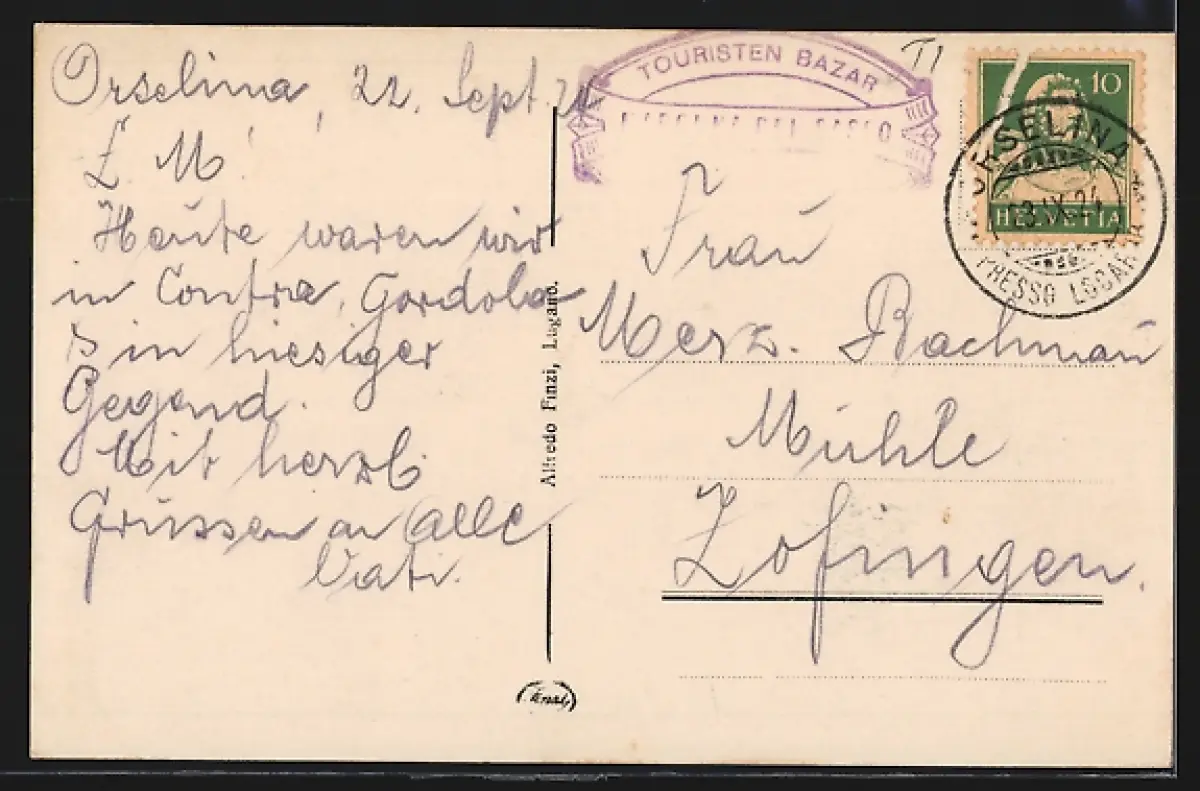 Orselina, 22. Sept. 24
L. M!
Heute waren wir
in Contra, Gordola
in hiesiger
Gegend.
Mit herzl.
Grüssen an alle
Vati.
Alfredo Finzi, Lugano.
TOURISTEN BAZAR
MADONNA DEL SASSO
T1
10
HELVETIA
ORSELINA
23.IX.24
PRESSO LOCARNO
Frau
Merz. Bachmann
Mühle
Zofingen.